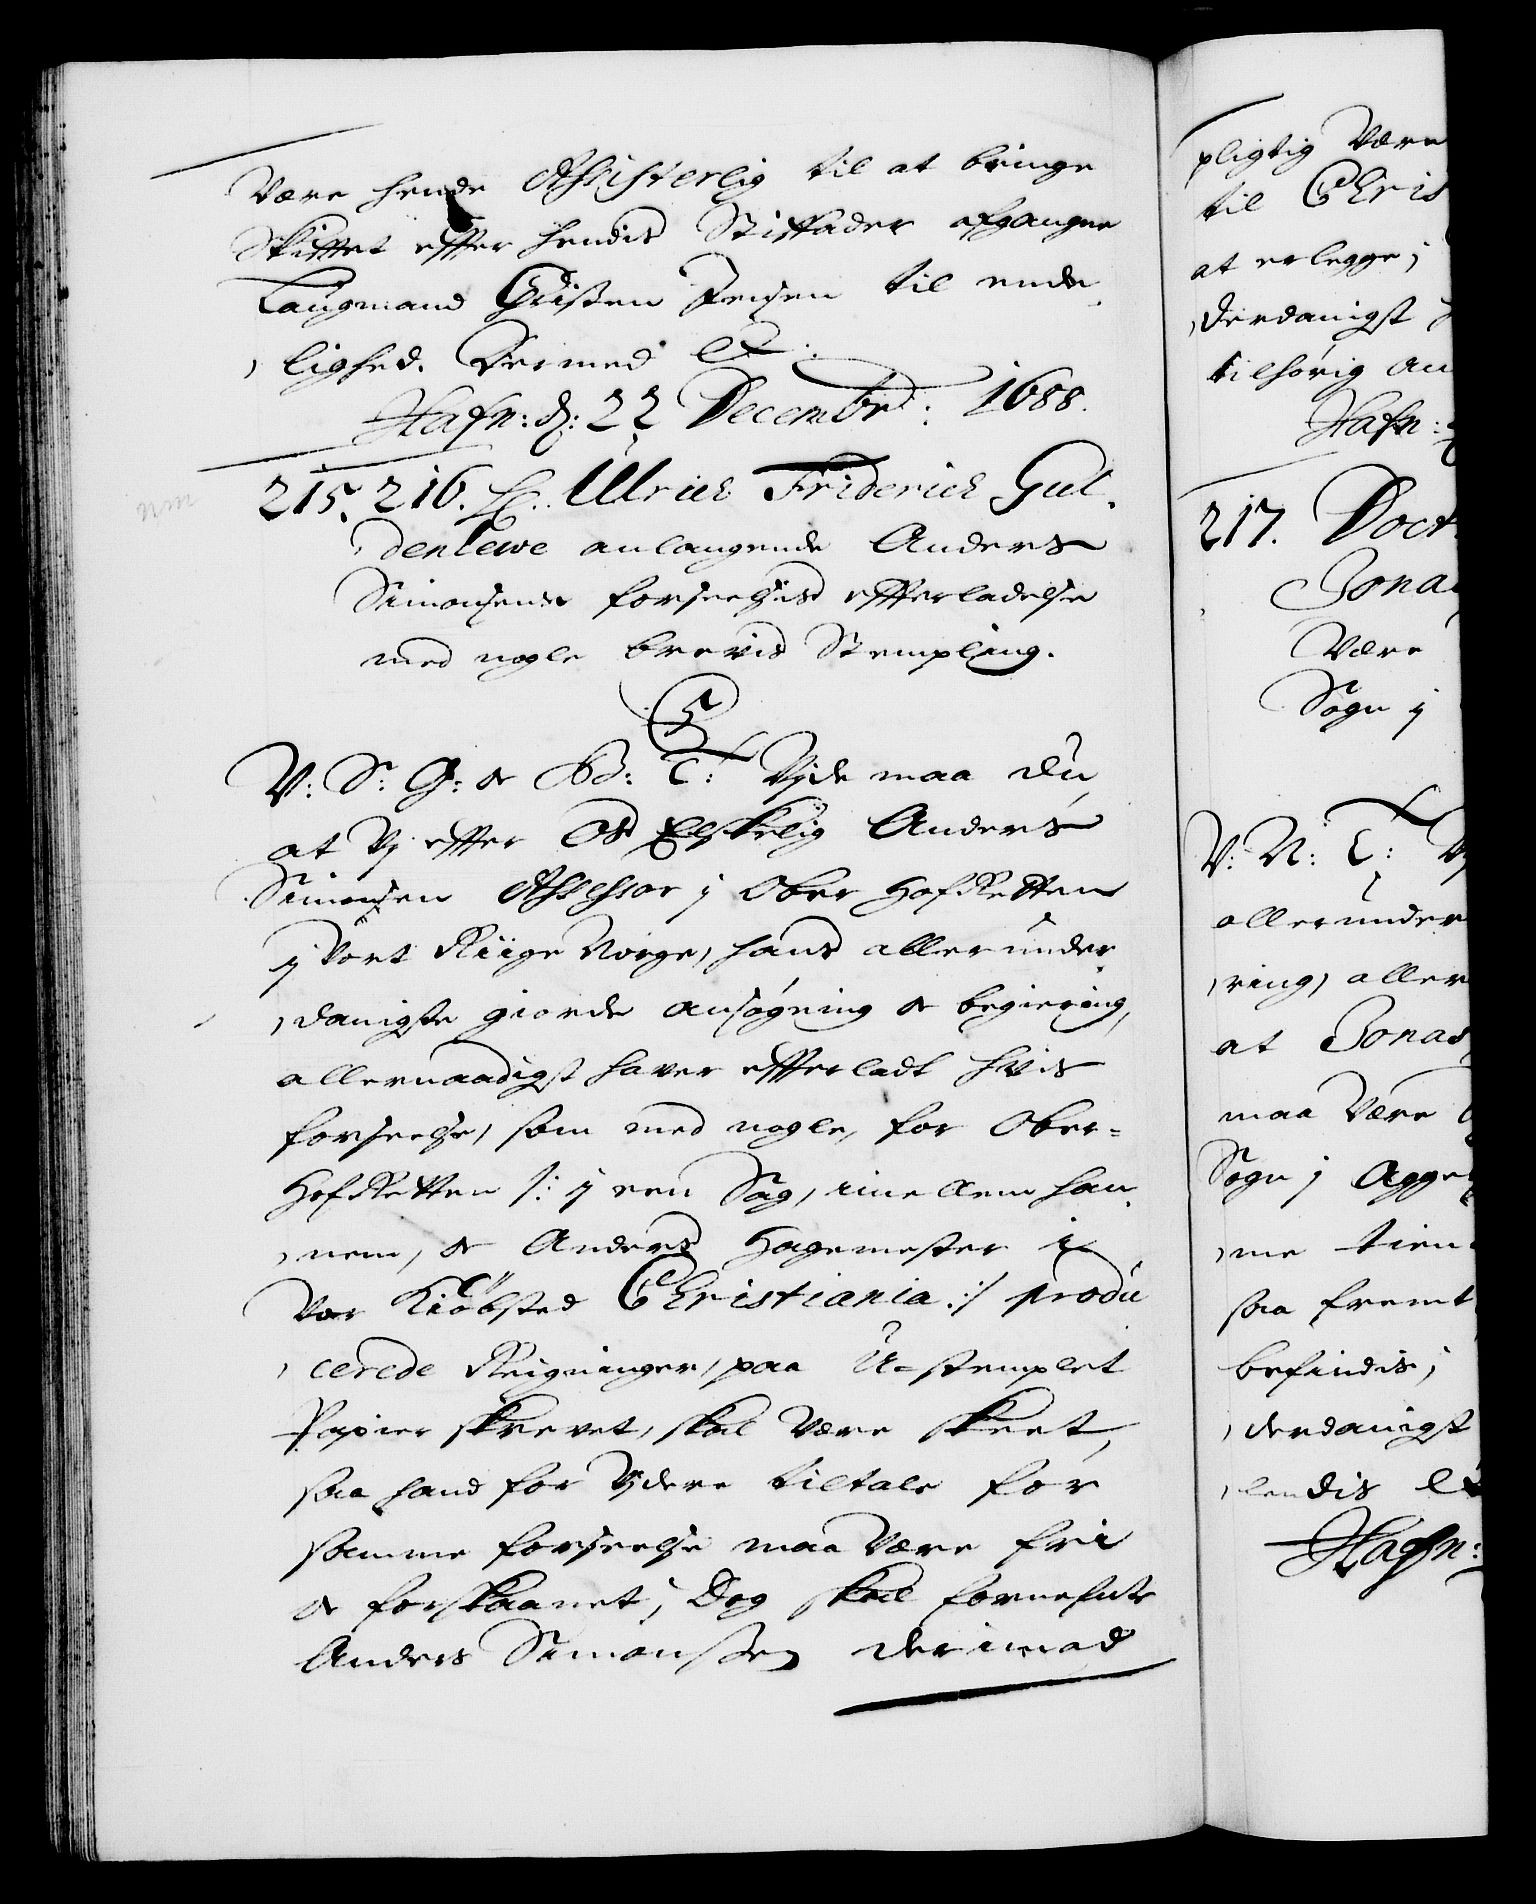 Være hende Assisterlig til at bringe
Skiftet effter hendis Stiffader afgangne
Laugmand Christen Jensen til ende¬
lighed. Dermed etc.
Hafn: d: 22 Decembr: 1688.
215. 216. Hr: Ulrich Friderich Gul¬
denlewe anlangende Anders
Simonsens forseelsis effterladelse
med nogle brevis Stempling.
C5
V: S: G: & B: T: Vide maa du,
at Vj effter Os Elskelig Anders
Simonsen Assessor j Ober HofRetten
j Vort Riige Norge, hans allerunder¬
danigste giorde ansøgning & begiering,
allernaadigst haver effterladt hvis
forseelse, som med nogle, for Ober=
HofRetten /: j een Sag, imellem han¬
nem, & Anders Hagemester i
Vor Kiöbsted Christiania :/ produ
cerede Reigninger, paa U-stemplet
Papier skrevet, skal Være skeet,
saa hand for Videre tiltale for
samme forseelse maa Være fri
& forskaanet; Dog skal fornefnte
Anders Simonsen derimod
pligtig Være
til Chris
at erlegge;
derdanigst
tilhörig an
Hafn:
217. Doct
Jonas
Være
Sogn j
V: N: T: V
allerunder
ring, aller
at Jonas
maa Være
Sogn j Agge
me tien
saa fremt
befindis;
derdanigst
lendis etc
Hafn: